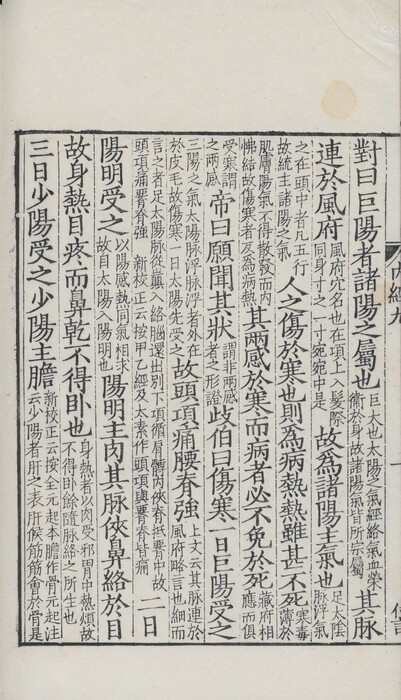 對曰巨陽者諸陽之屬也巨大也太陽之氣經絡氣血榮衛於身故諸陽氣皆所宗屬其脉
連於風府風府穴名也在項上入髮際同身寸之一寸宛宛中是故為諸陽主氣也足太陰脉浮氣
之在頭中者凡五行故統主諸陽之氣人之傷於寒也則為病熱熱雖甚不死寒毒薄於
肌膚陽氣不得散發而內怫結故傷寒者反為病熱其兩感於寒而病者必不免於死藏府相應而俱
受寒謂之兩感帝曰願聞其狀謂非兩感者之形證歧伯曰傷寒一日巨陽受之
三陽之氣太陽脉浮脉浮者外在於皮毛故傷寒一日太陽先受之故頭項痛腰脊強上文云其脉連於風府略言也細而
言之者足太陽脉從巔入絡腦還出別下項循肩髆內俠脊抵腰中故頭項痛腰脊強新校正云按甲乙經及太素作頭項與腰脊皆痛二日
陽明受之以陽感熱同氣相求故自太陽入陽明也陽明主肉其脉俠鼻絡於目
故身熱目疼而鼻乾不得臥也身熱者以肉受邪胃中熱煩故不得臥餘隨脉絡之所生也
三日少陽受之少陽主膽新校正云按全元起本膽作骨元起注云少陽者肝之表肝候筋筋會於骨是